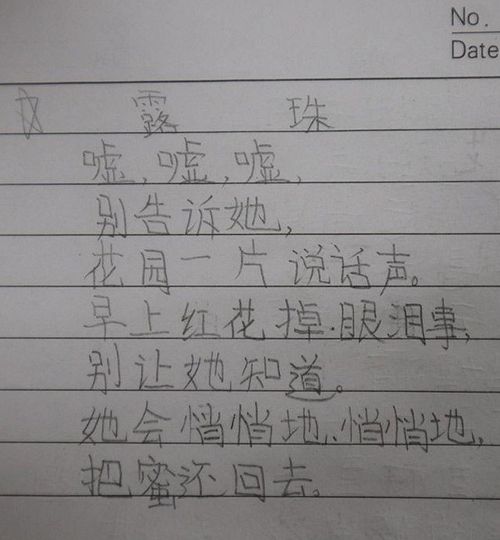 No.
Date
露 珠
嘘,嘘,嘘,
别告诉她,
花园一片说话声。
早上红花掉眼泪事,
别让她知道。
她会悄悄地、悄悄地,
把蜜还回去。